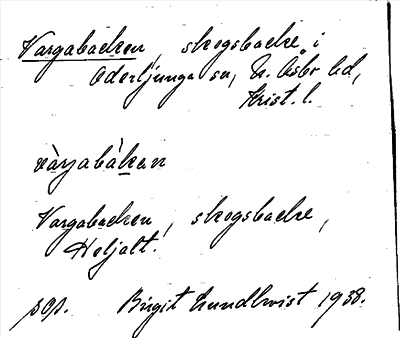 Vargabacken, skogsbacke i
Oderljunga sn, N. Åsbo hd,
Krist. l.
vàrjabàkan
Vargabacken, skogsbacke,
Heljalt.
Birgit Lundkvist 1938.